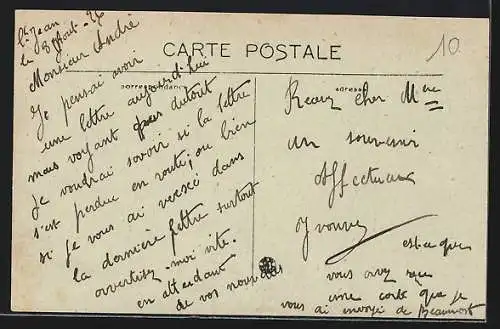 St Jean
le 8 Août - 26
Monsieur André
CARTE POSTALE
10
Correspondance
Adresse
Je pensai avoir
une lettre aujourd'hui
mais voyant pas du tout
Je voudrai savoir si la lettre
s'est perdue en route; ou bien
si je vous ai vexé dans
la dernière lettre surtout
avertisez-moi vite.
en attendant
de vos nouvelles
Recevez cher Mme
un souvenir
affectueux
Yvonne
est-ce que
vous avez reçu
une carte que je
vous ai envoyé de Beaumont